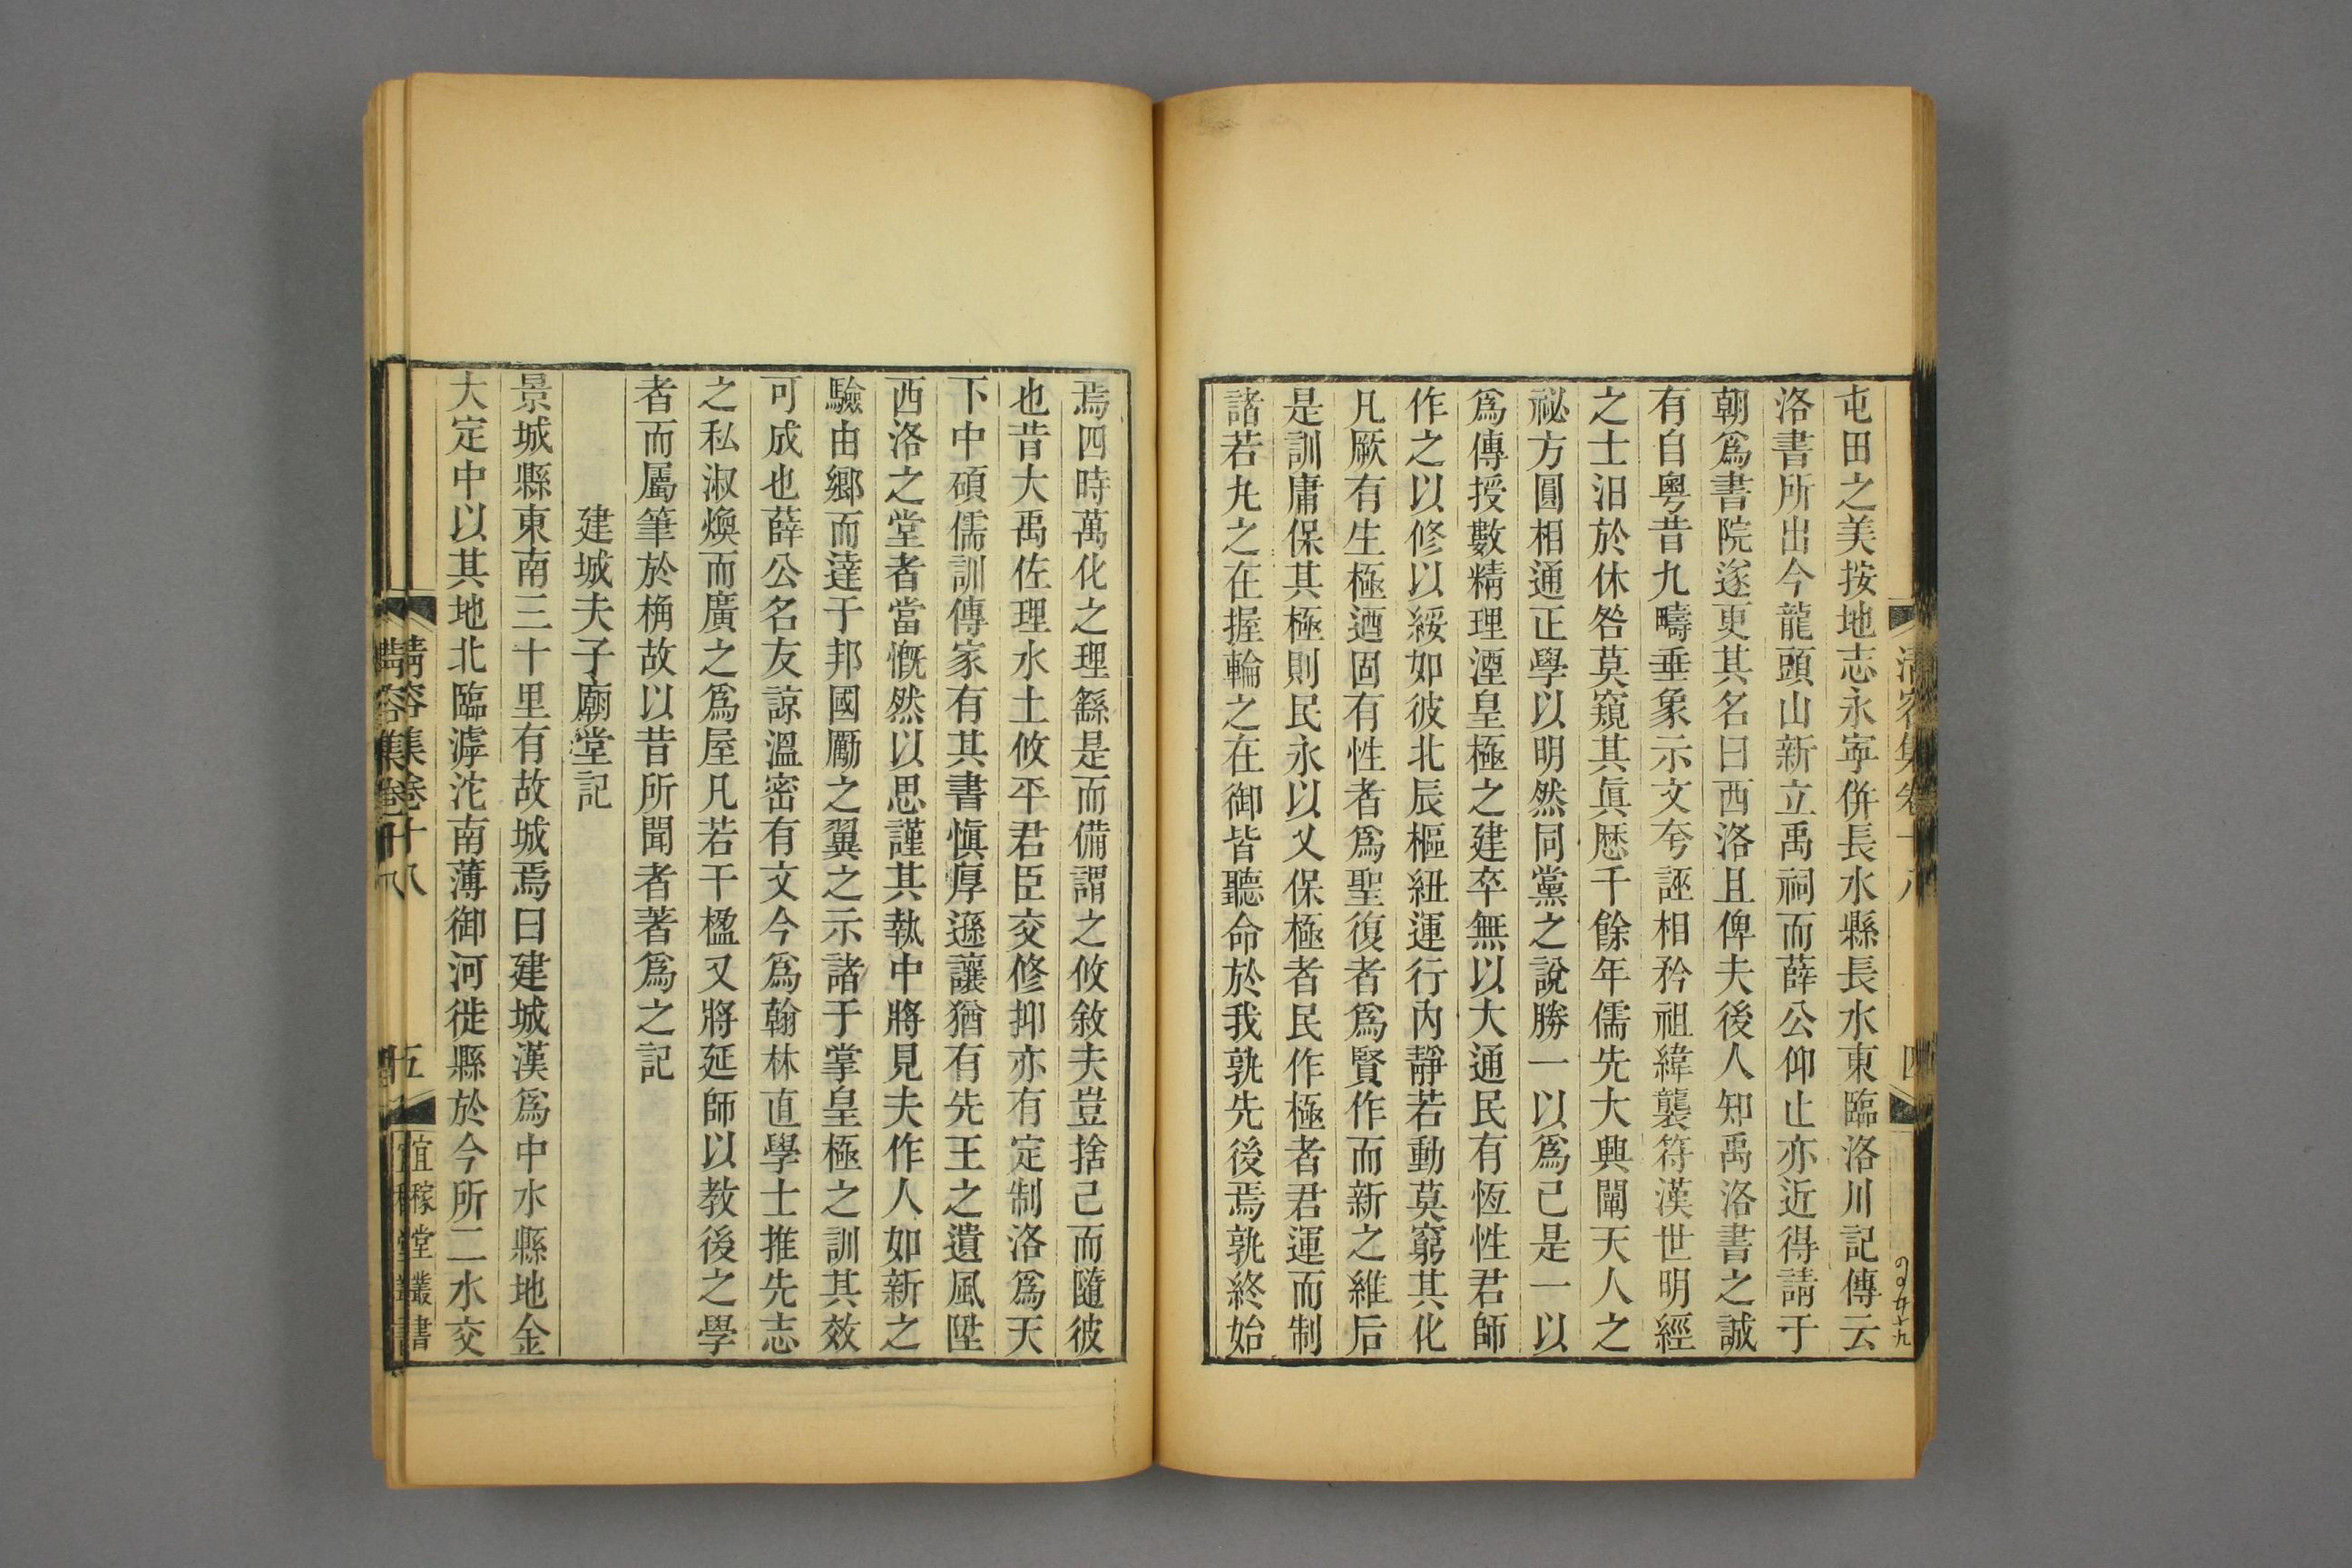 清容集卷十八
四
屯田之美按地志永寧併長水縣長水東臨洛川記傳云
洛書所出今龍頭山新立禹祠而薛公仰止亦近得請于
朝爲書院遂更其名曰西洛且俾夫後人知禹洛書之誠
有自粵昔九疇垂象示文兮誣相矜祖緯襲符漢世明經
之士汨於休咎莫窺其眞歷千餘年儒先大興闡天人之
祕方圓相通正學以明然同黨之說勝一以爲己是一以
爲傳授數精理湮皇極之建卒無以大通民有恆性君師
作之以修以綏如彼北辰樞紐運行內靜若動莫窮其化
凡厥有生極迺固有性者爲聖復者爲賢作而新之維后
是訓庸保其極則民永以乂保極者民作極者君運而制
諸若九之在握輪之在御皆聽命於我孰先後焉孰終始
焉四時萬化之理繇是而備謂之攸敘夫豈捨己而隨彼
也昔大禹佐理水土攸平君臣交修抑亦有定制洛爲天
下中碩儒訓傳家有其書愼厚遜讓猶有先王之遺風陞
西洛之堂者當慨然以思謹其執中將見夫作人如新之
驗由鄉而達于邦國勵之翼之示諸于掌皇極之訓其效
可成也薛公名友諒溫密有文今爲翰林直學士推先志
之私淑煥而廣之爲屋凡若干楹又將延師以教後之學
者而屬筆於桷故以昔所聞者著爲之記
建城夫子廟堂記
景城縣東南三十里有故城焉曰建城漢爲中水縣地金
大定中以其地北臨滹沱南薄御河徙縣於今所二水交
清容集卷十八
五
宜稼堂叢書